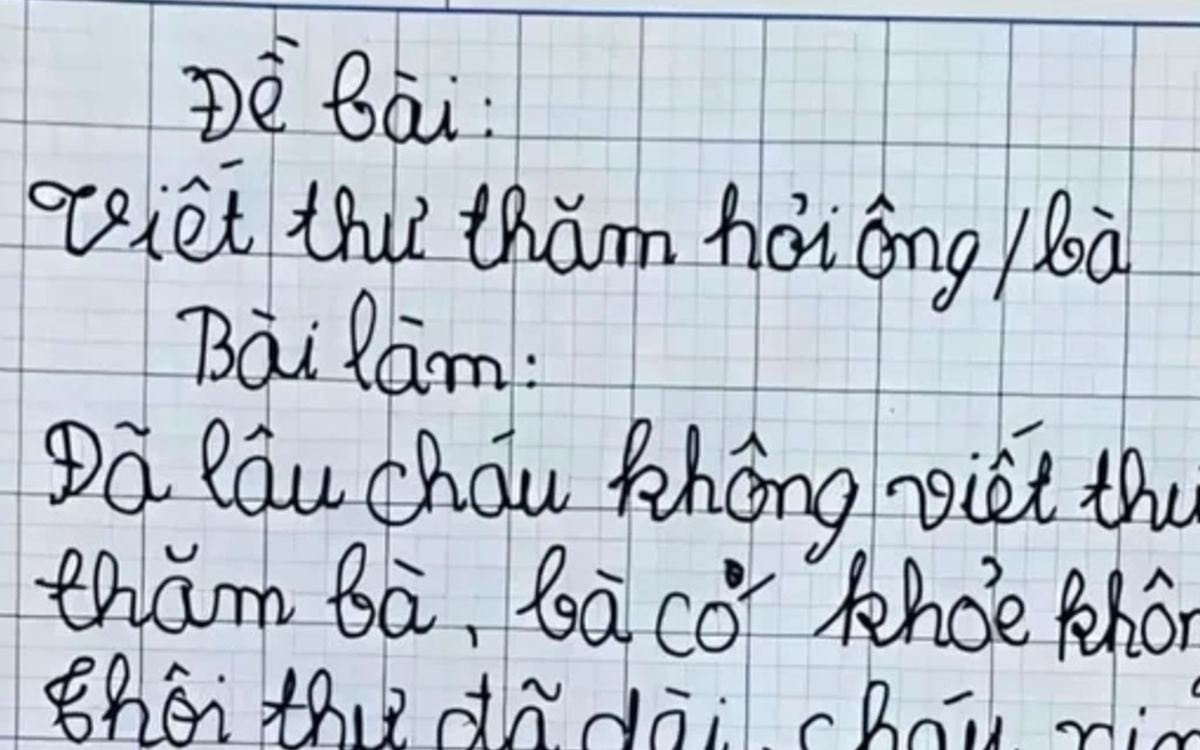 Đề bài:
Viết thư thăm hỏi ông/bà
Bài làm:
Đã lâu cháu không viết thư
thăm bà, bà có khỏe khôn
Thôi thư đã dài, cháu xin